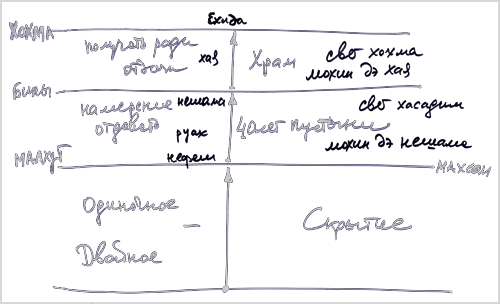 Ехида
ХОХМА
получать ради
отдачи
хая
Храм
свет хохма
мохин дэ хая
БИНЫ
намерение
отдавать
нешама
руах
нефеш
40 лет пустыни
свет хасадим
мохин дэ нешама
МАЛХУТ
МАХСОМ
Одинойное
Двойное
Скрытие